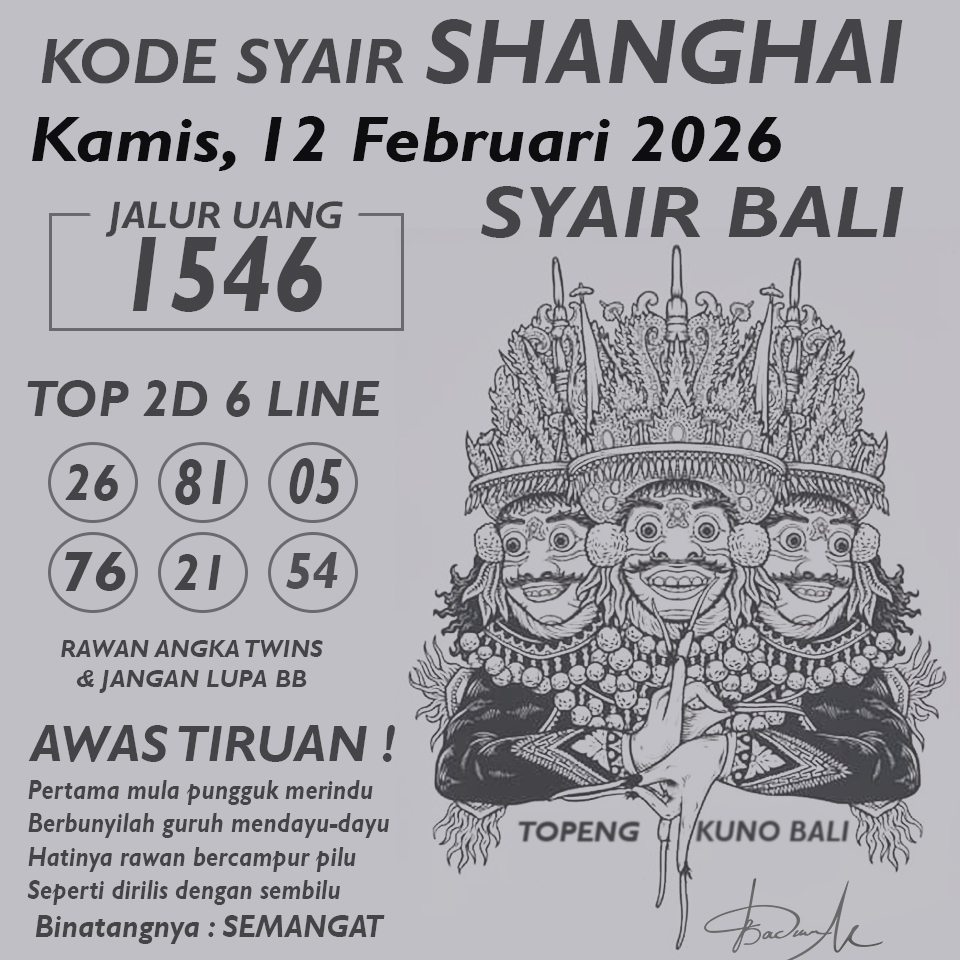 KODE SYAIR SHANGHAI
Kamis, 12 Februari 2026
SYAIR BALI
JALUR UANG
1546
TOP 2D 6 LINE
26 81 05
76 21 54
RAWAN ANGKA TWINS
& JANGAN LUPA BB
AWAS TIRUAN !
Pertama mula pungguk merindu
Berbunyilah guruh mendayu-dayu
Hatinya rawan bercampur pilu
Seperti dirilis dengan sembilu
Binatangnya : SEMANGAT
TOPENG KUNO BALI